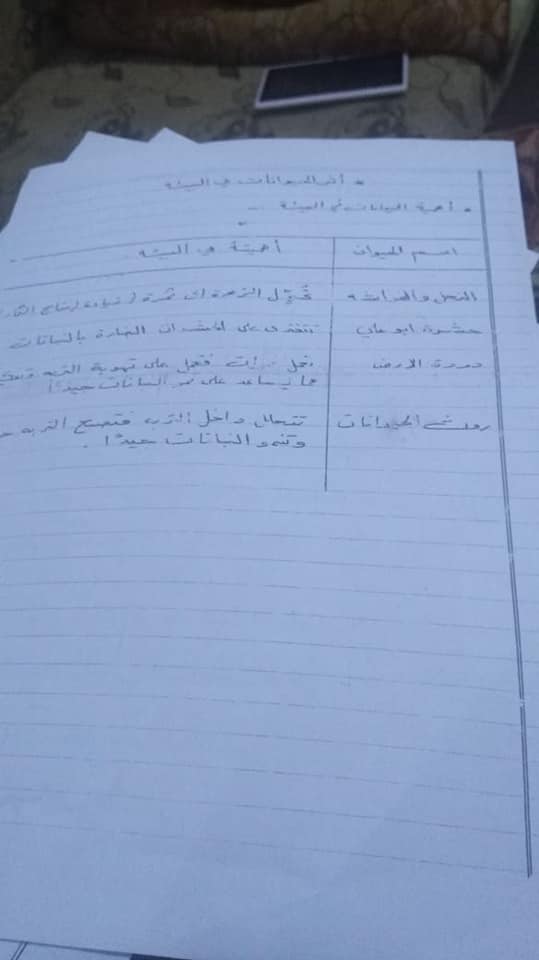 * أثر الحيوانات في البيئة
* أهمية النباتات في البيئة
اسم الحيوان أهميته في البيئة
النحل والفراشة تحول الزهرة إلى ثمرة (زيادة إنتاج
حشرة ابو علي تتغذى على الحشرات الضارة بالنباتات
دودة الارض تعمل على تهوية التربة
مما يساعد على نمو النباتات جيدًا
روث الحيوانات تتحلل داخل التربة فتصبح التربة
وتنمو النباتات جيدًا.